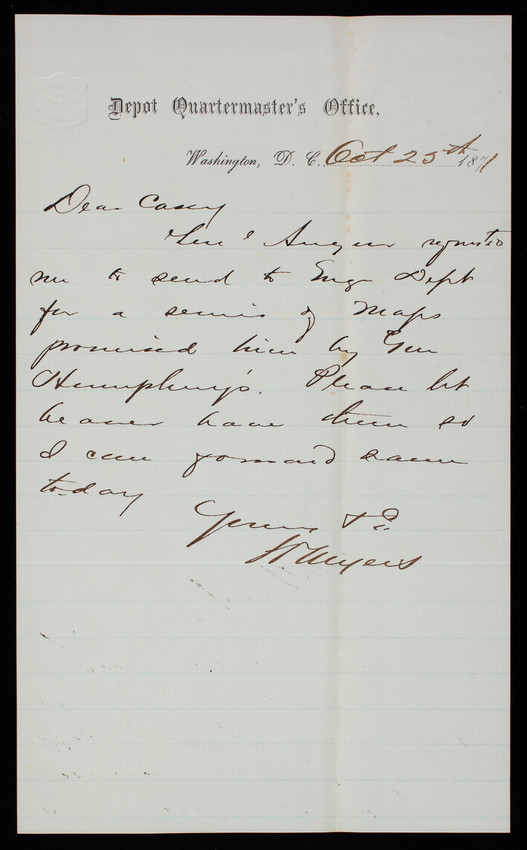 Depot Quartermaster's Office,
Washington, D. C. Oct 25th 1871
Dear Casey
Genl Augur requests
me to send to Engr Dept
for a series of Maps
promised him by Gen
Humphrey's. Please let
bearer have them so
I can forward same
to-day
Yours &c
Wm Myers